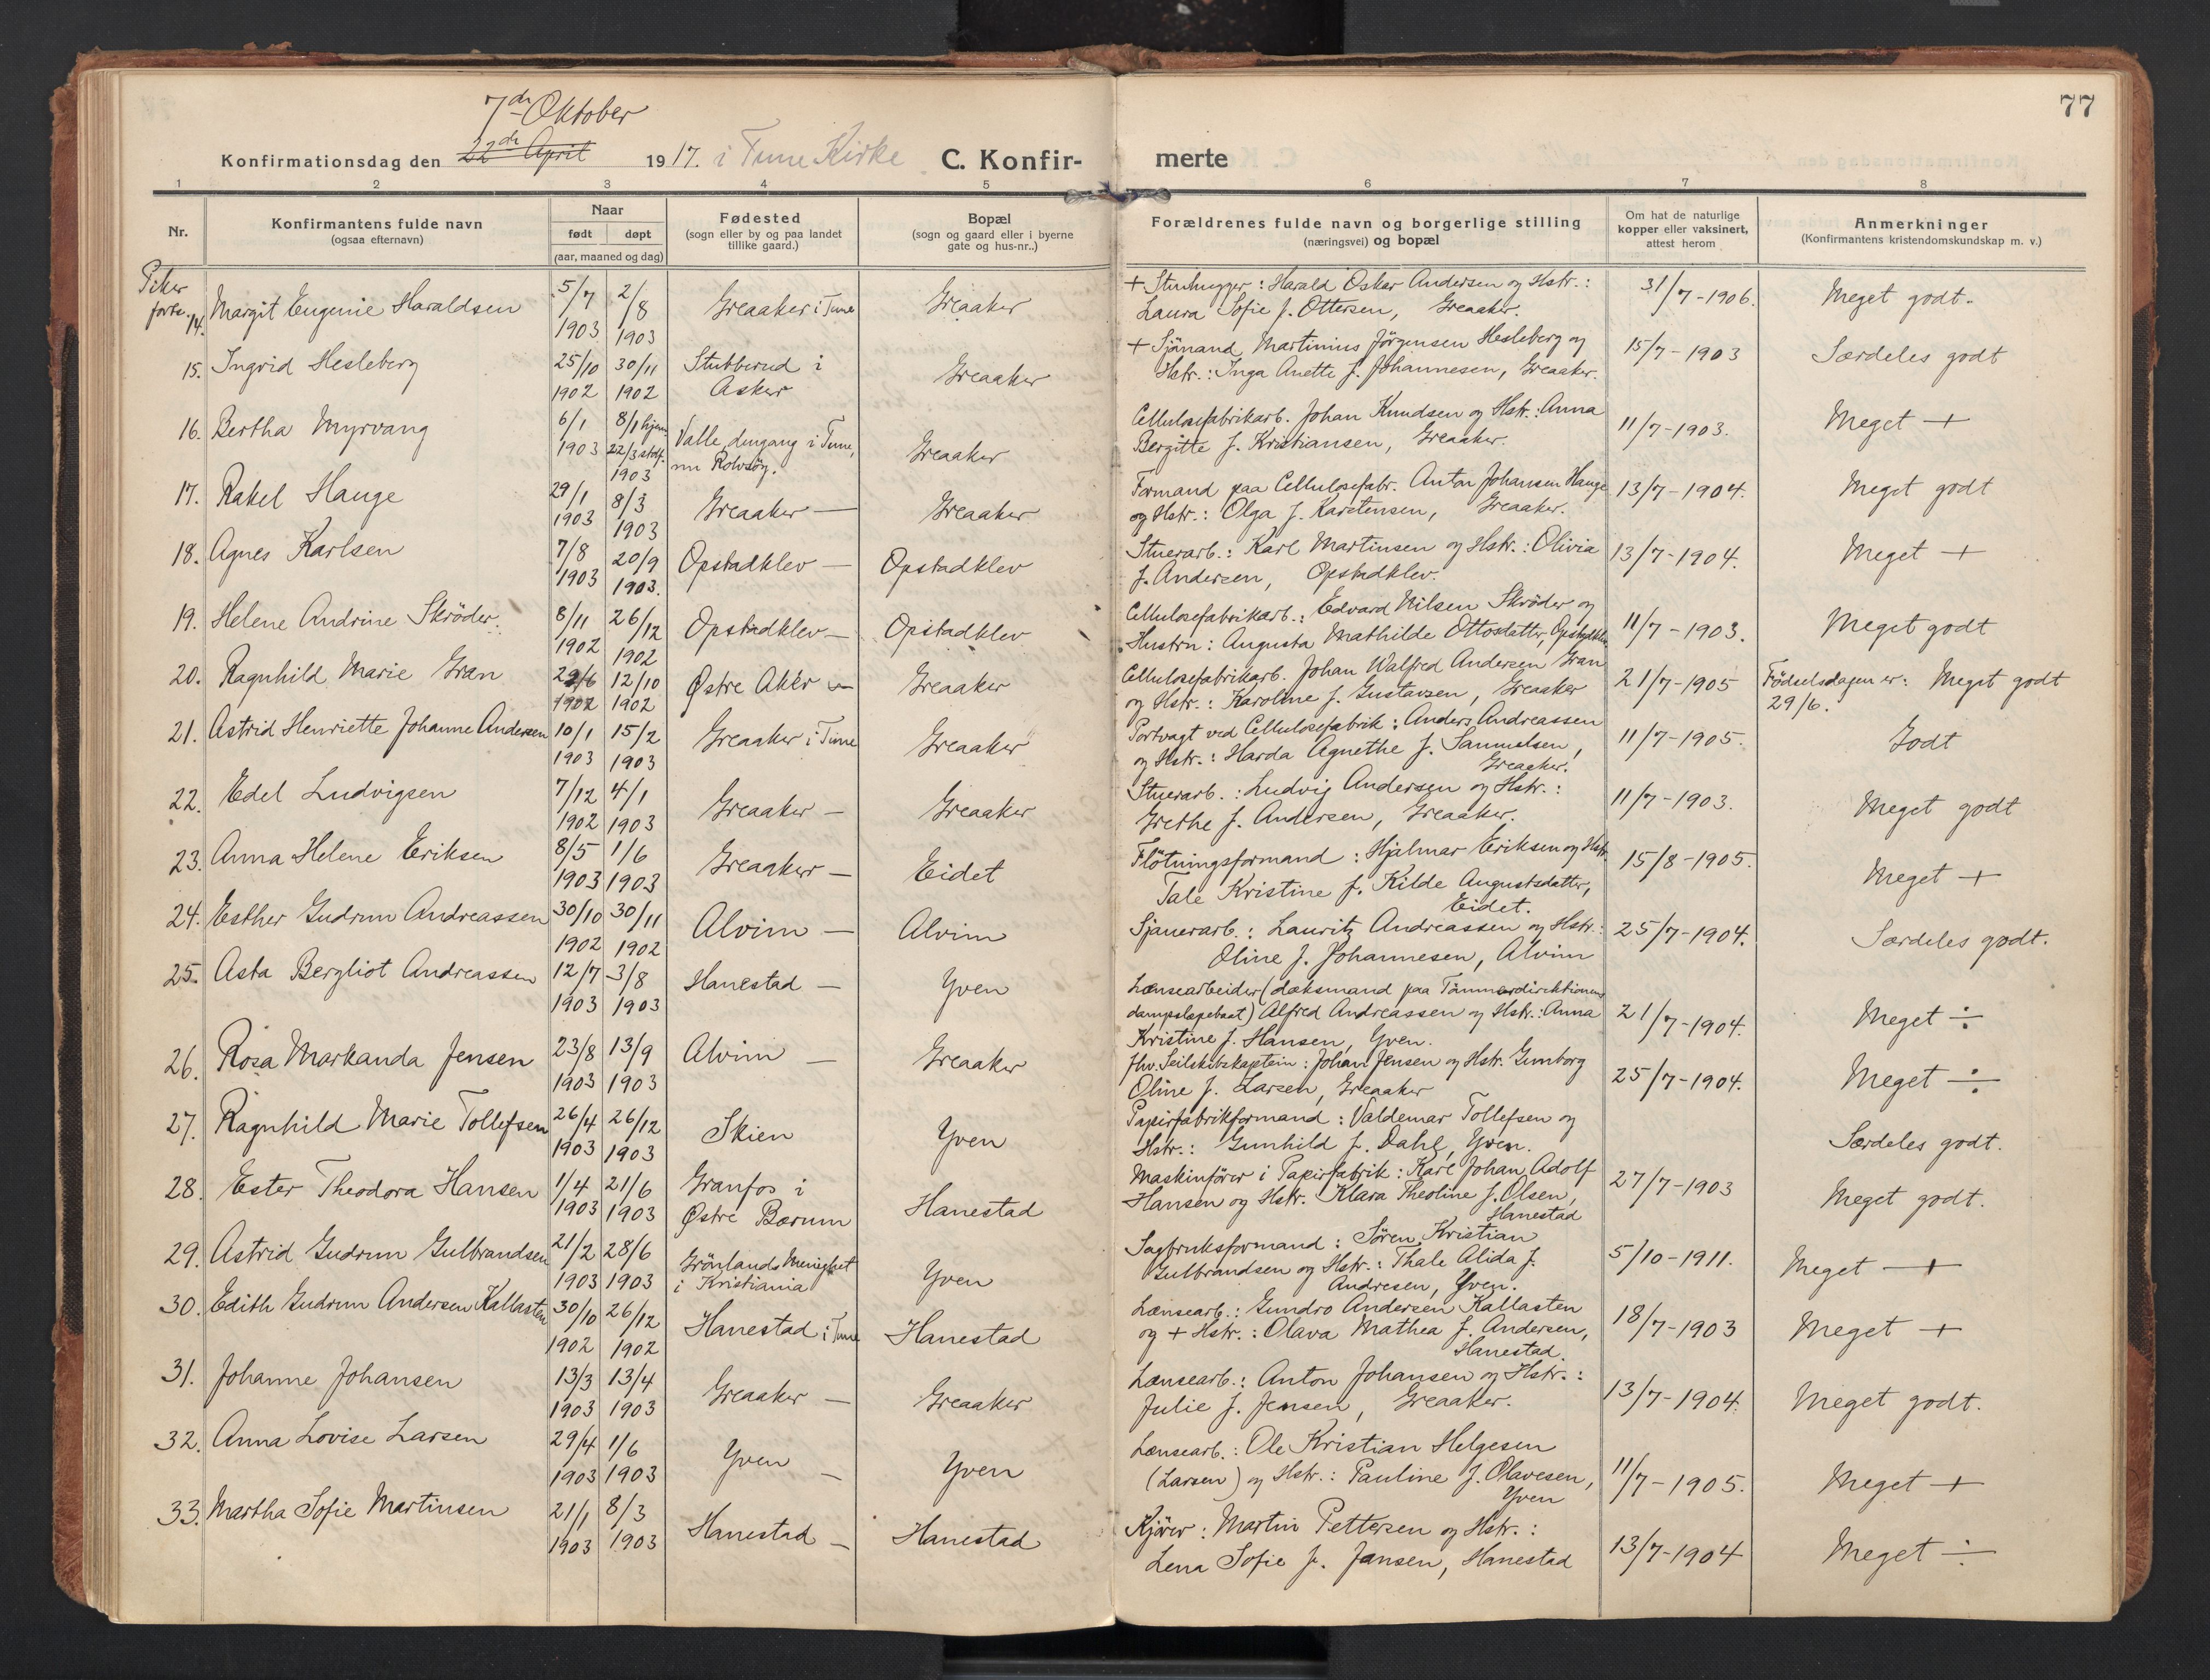 77
7de Oktober
Konfirmationsdag den 22de April 1917. i Tune Kirke C. Konfir- merte
1 2 3 4 5 6 7 8
Nr.
Konfirmantens fulde navn
(ogsaa efternavn)
Naar
født døpt
(aar, maaned og dag)
Fødested
(sogn eller by og paa landet
tillike gaard.)
Bopæl
(sogn og gaard eller i byerne
gate og hus-nr..)
Forældrenes fulde navn og borgerlige stilling
(næringsvei) og bopæl
Om hat de naturlige
kopper eller vaksinert,
attest herom
Anmerkninger
(Konfirmantens kristendomskundskap m. v.)
Piker
forts.
14. Margit Eugenie Haraldsen 5/7 1903 2/8 1903 Greaaker i Tune Greaaker
+ Stenhugger: Harald Oskar Andersen og Hstr.:
Laura Sofie f. Ottersen, Greaaker.
31/7-1906. Meget godt.
15. Ingrid Hesleberg 25/10 1902 30/11 1902 Stubberud i Asker Greaaker
+ Sjömand Martinius Jörgensen Hesleberg og
Hstr.: Inga Anette f. Johannesen, Greaaker.
15/7-1903 Særdeles godt
16. Bertha Myrvang 6/1 1903 8/1 hjem 22/3 stadf. 1903 Valle, dengang i Tune, nu Rolvsöy. Greaaker
Cellulosefabrikarb. Johan Knudsen og Hstr.: Anna
Bergitte f. Kristiansen, Greaaker.
11/7-1903. Meget +
17. Rakel Hauge 29/1 1903 8/3 1903 Greaaker — Greaaker
Formand paa Cellulosefabr. Anton Johansen Hauge
og Hstr.: Olga f. Karstensen, Greaaker.
13/7-1904. Meget godt
18. Agnes Karlsen 7/8 1903 20/9 1903. Opstadklev — Opstadklev
Stuerarb.: Karl Martinsen og Hstr.: Olivia
f. Andersen, Opstadklev.
13/7-1904. Meget +
19. Helene Andrine Skröder. 8/11 1902 26/12 1902 Opstadklev — Opstadklev
Cellulosefabrikarb.: Edvard Nilsen Skröder og
Hustru: Augusta Mathilde Ottosdatter, Opstadklev
11/7-1903. Meget godt
20. Ragnhild Marie Gran 29/6 1902 12/10 1902 Østre Aker Greaaker
Cellulosefabrikarb. Johan Walfred Andersen Gran
og Hstr.: Karoline f. Gustavsen, Greaaker
21/7-1905 Fødselsdagen er: 29/6. Meget godt
21. Astrid Henriette Johanne Andersen 10/1 1903 15/2 1903 Greaaker i Tune Greaaker
Portvagt ved Cellulosefabrik: Anders Andreassen
og Hstr.: Harda Agnethe f. Samuelsen,
Greaaker.
11/7-1905. Godt
22. Edel Ludvigsen 7/12 1902 4/1 1903 Greaaker — Greaaker
Stuerarb.: Ludvig Andersen og Hstr.:
Grethe f. Andersen, Greaaker.
11/7-1903. Meget godt
23. Anna Helene Eriksen 8/5 1903 1/6 1903 Greaaker — Eidet
Flötningsformand: Hjalmar Eriksen og Hstr.
Tale Kristine f. Kilde Augustsdatter,
Eidet.
15/8-1905. Meget +
24. Esther Gudrun Andreassen 30/10 1902 30/11 1902 Alvim — Alvim
Sjauerarb.: Lauritz Andreassen og Hstr.:
Oline f. Johannesen, Alvim
25/7-1904. Særdeles godt.
25. Asta Bergliot Andreassen 12/7 1903 3/8 1903 Hanestad — Yven
Lænsearbeider (dæksmand paa Tömmerdirektionens
dampslæpebaat) Alfred Andreassen og Hstr.: Anna
Kristine f. Hansen, Yven.
21/7-1904. Meget ÷
26. Rosa Markanda Jensen 23/8 1903 13/9 1903 Alvim — Greaaker
fhv. Seilskibskaptein: Johan Jensen og Hstr. Gunborg
Oline f. Larsen, Greaaker
25/7-1904. Meget ÷
27. Ragnhild Marie Tollefsen 26/4 1903 26/12 1903 Skien Yven
Papirfabrikformand: Valdemar Tollefsen og
Hstr.: Gunhild f. Dahl, Yven.
Særdeles godt.
28. Ester Theodora Hansen 1/4 1903 21/6 1903 Granfos i Østre Bærum Hanestad
Maskinförer i Papirfabrik: Karl Johan Adolf
Hansen og Hstr. Klara Theoline f. Olsen,
Hanestad
27/7-1903 Meget godt.
29. Astrid Gudrun Gulbrandsen 21/2 1903 28/6 1903 Grönlands Menighet i Kristiania Yven
Sagbruksformand: Sören Kristian
Gulbrandsen og Hstr.: Thale Alida f.
Andresen, Yven.
5/10-1911. Meget +
30. Edith Gudrun Andersen Kallasten 30/10 1902 26/12 1902 Hanestad i Tune Hanestad
Lænsearb.: Gundro Andersen Kallasten
og + Hstr.: Olava Mathea f. Andersen,
Hanestad.
18/7-1903 Meget +
31. Johanne Johansen 13/3 1903 13/4 1903 Greaaker — Greaaker
Lænsearb.: Anton Johansen og Hstr.:
Julie f. Jensen, Greaaker.
13/7-1904. Meget godt.
32. Anna Lovise Larsen 29/4 1903 1/6 1903 Yven — Yven
Lænsearb.: Ole Kristian Helgesen
(Larsen) og Hstr.: Pauline f. Olavesen,
Yven
11/7-1905. Meget +
33. Martha Sofie Martinsen 21/1 1903 8/3 1903 Hanestad — Hanestad
Kjörer: Martin Pettersen og Hstr.:
Lena Sofie f. Jansen, Hanestad
13/7-1904 Meget ÷